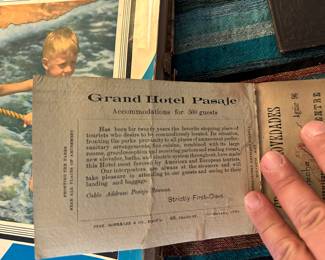 Grand Hotel Pasaje
Accommodations for 500 guests
Has been for twenty years the favorite stopping place of
tourists who desire to be comfortably housed. Its situation,
fronting the parks, proximity to all places of amusement, perfect
sanitary arrangements, fine cuisine, combined with its large
rooms, grand reception and receiving parlors and reading rooms,
new elevator, baths, and electric system throughout, have made
this Hotel most favored by American and European tourists.
Our interpreters are always at the steamers and will
take pleasure in attending to our guests and seeing to their
landing and baggage.
Cable Address: Pasaje Havana.
Strictly First-Class
FRONTING THE PARKS
NEAR ALL PLACES OF AMUSEMENT
NOVEDADES